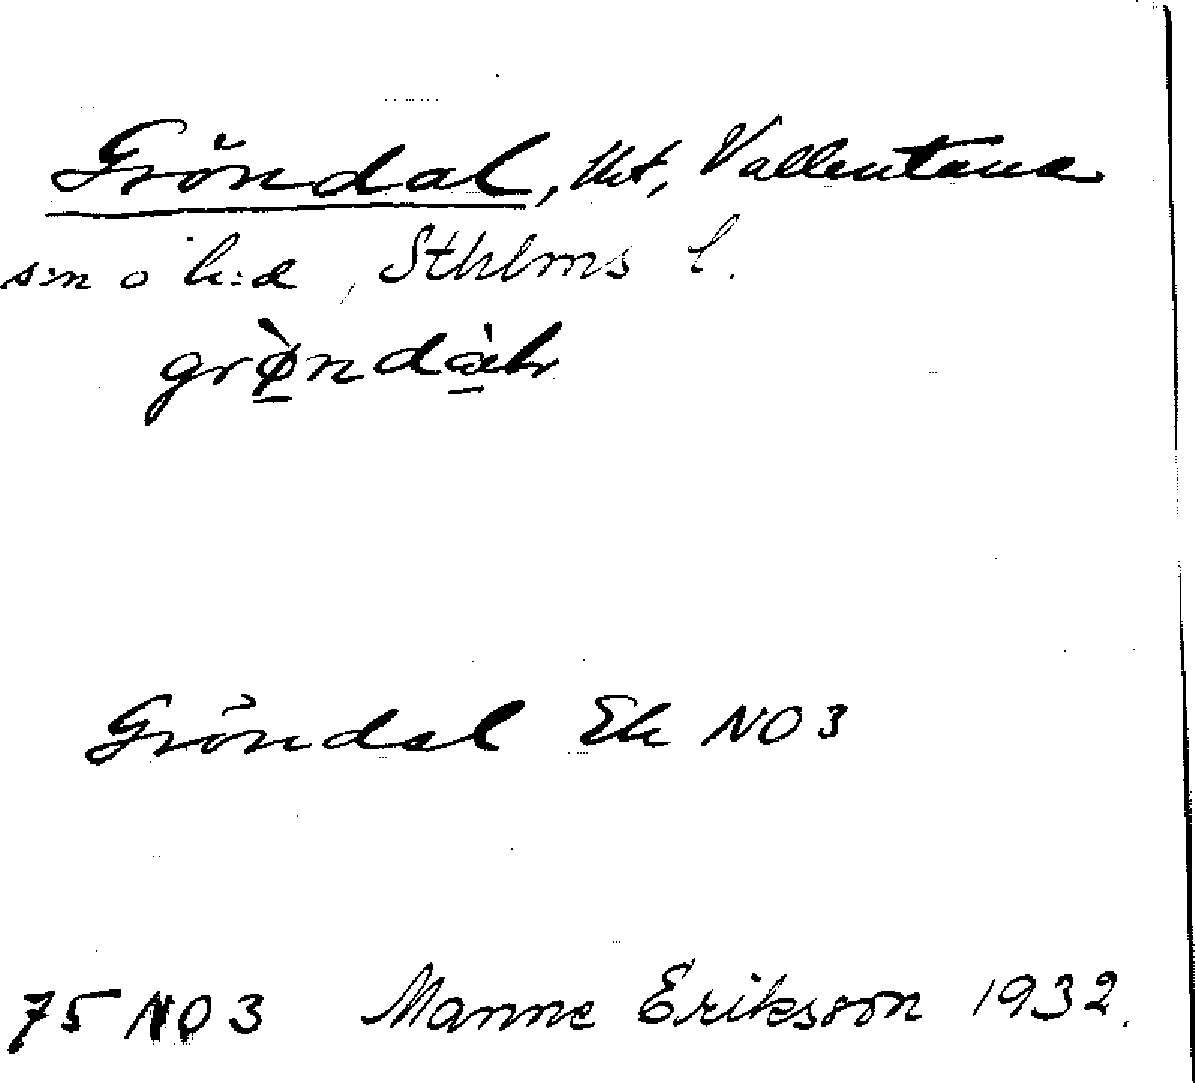 Gröndal, tht, Vallentuna
s:n o h:d, Sthlms l.
Gröndal Ek NO 3
75 NO 3 Manne Eriksson 1932.